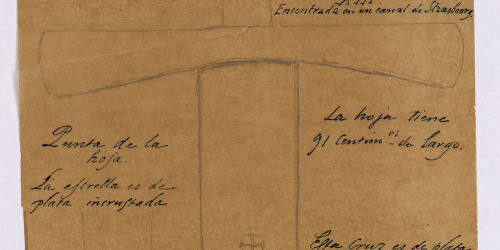 Encontrada en un canal de Strasbourg.
Punta de la
hoja.
La estrella es de
plata incrustada
La hoja tiene
91 Centim.os de largo.
Esta Cruz es de plata